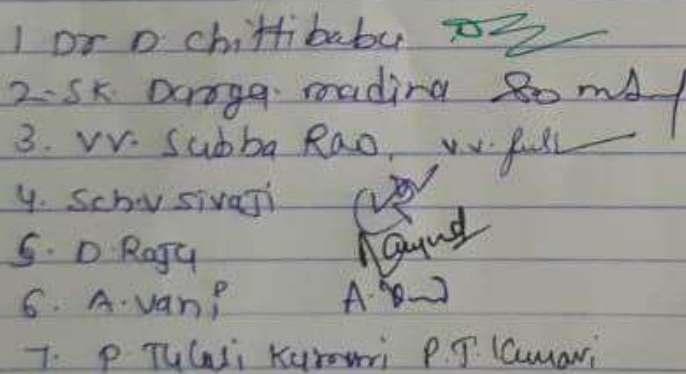 1 Dr D. chittibabu
2. SK. Daroga. madina
3. VV. Subba Rao,
4. Sch.V Sivaji
5. D. Raju
6. A. Vani A.
7. P. Tulasi Kumari P.T. Kumari